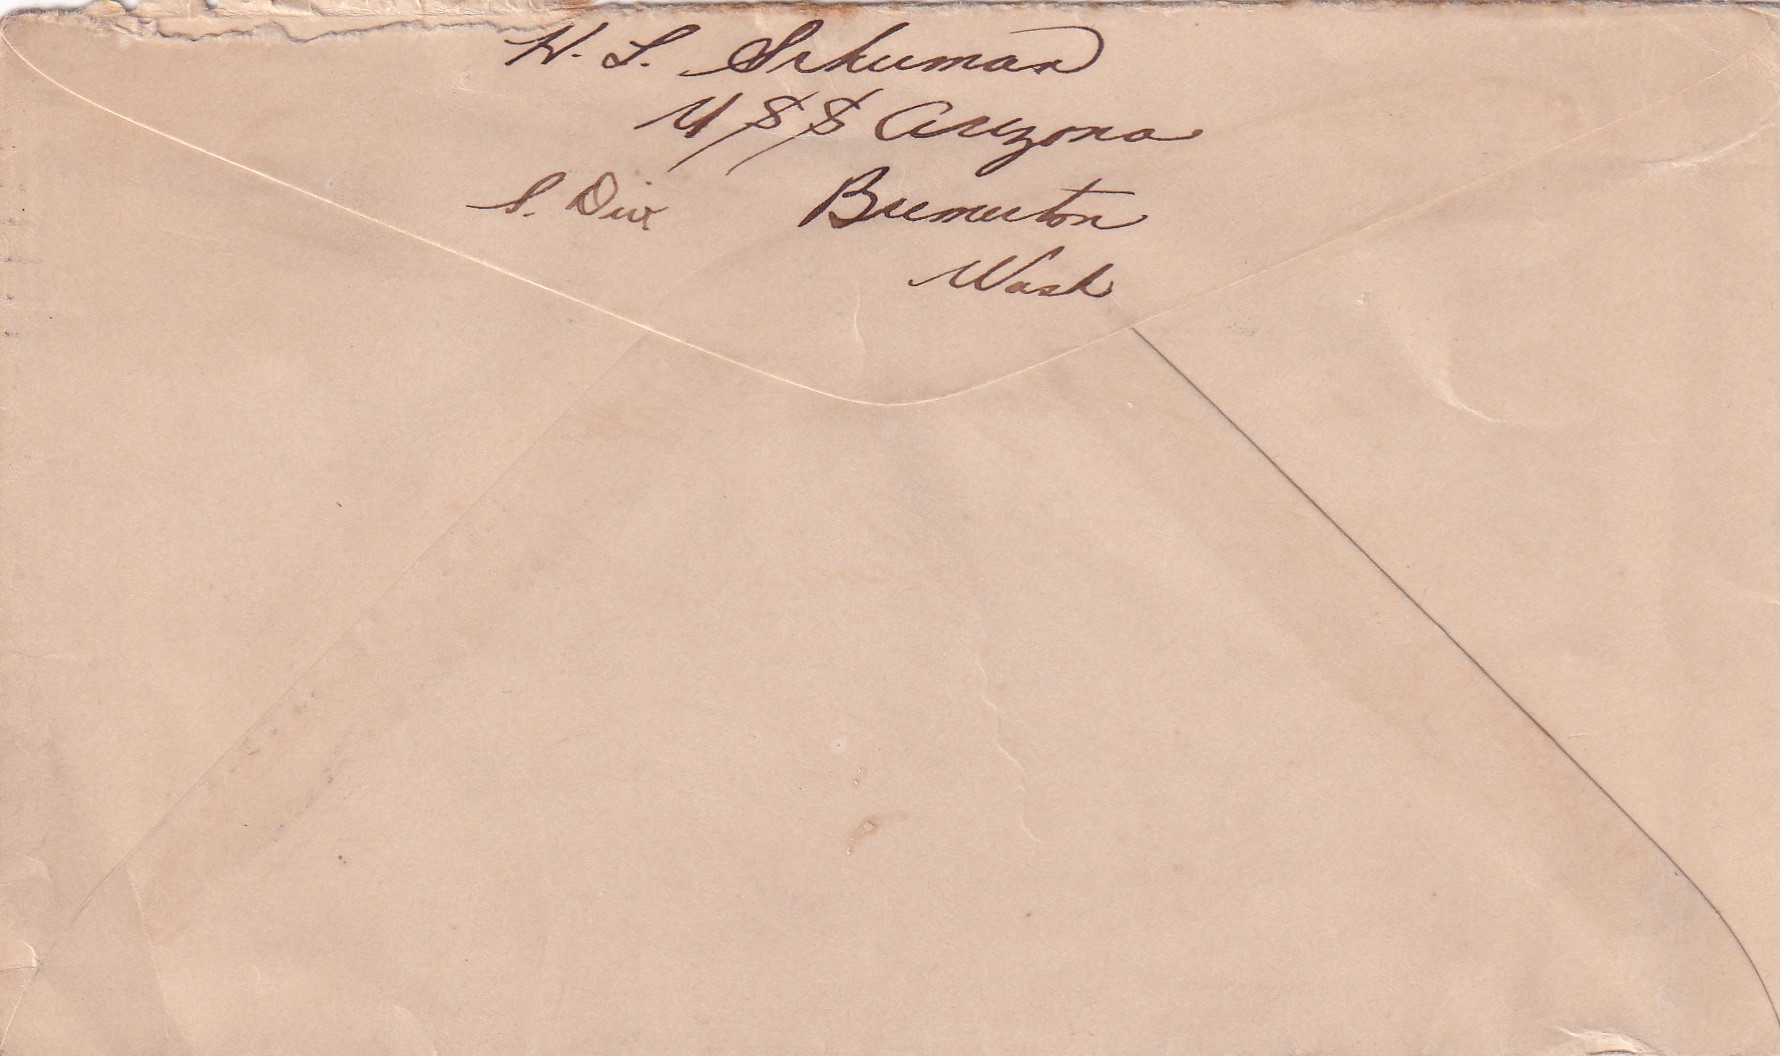 H. L. Schuman
U S S Arizona
S. Div Bremerton
Wash